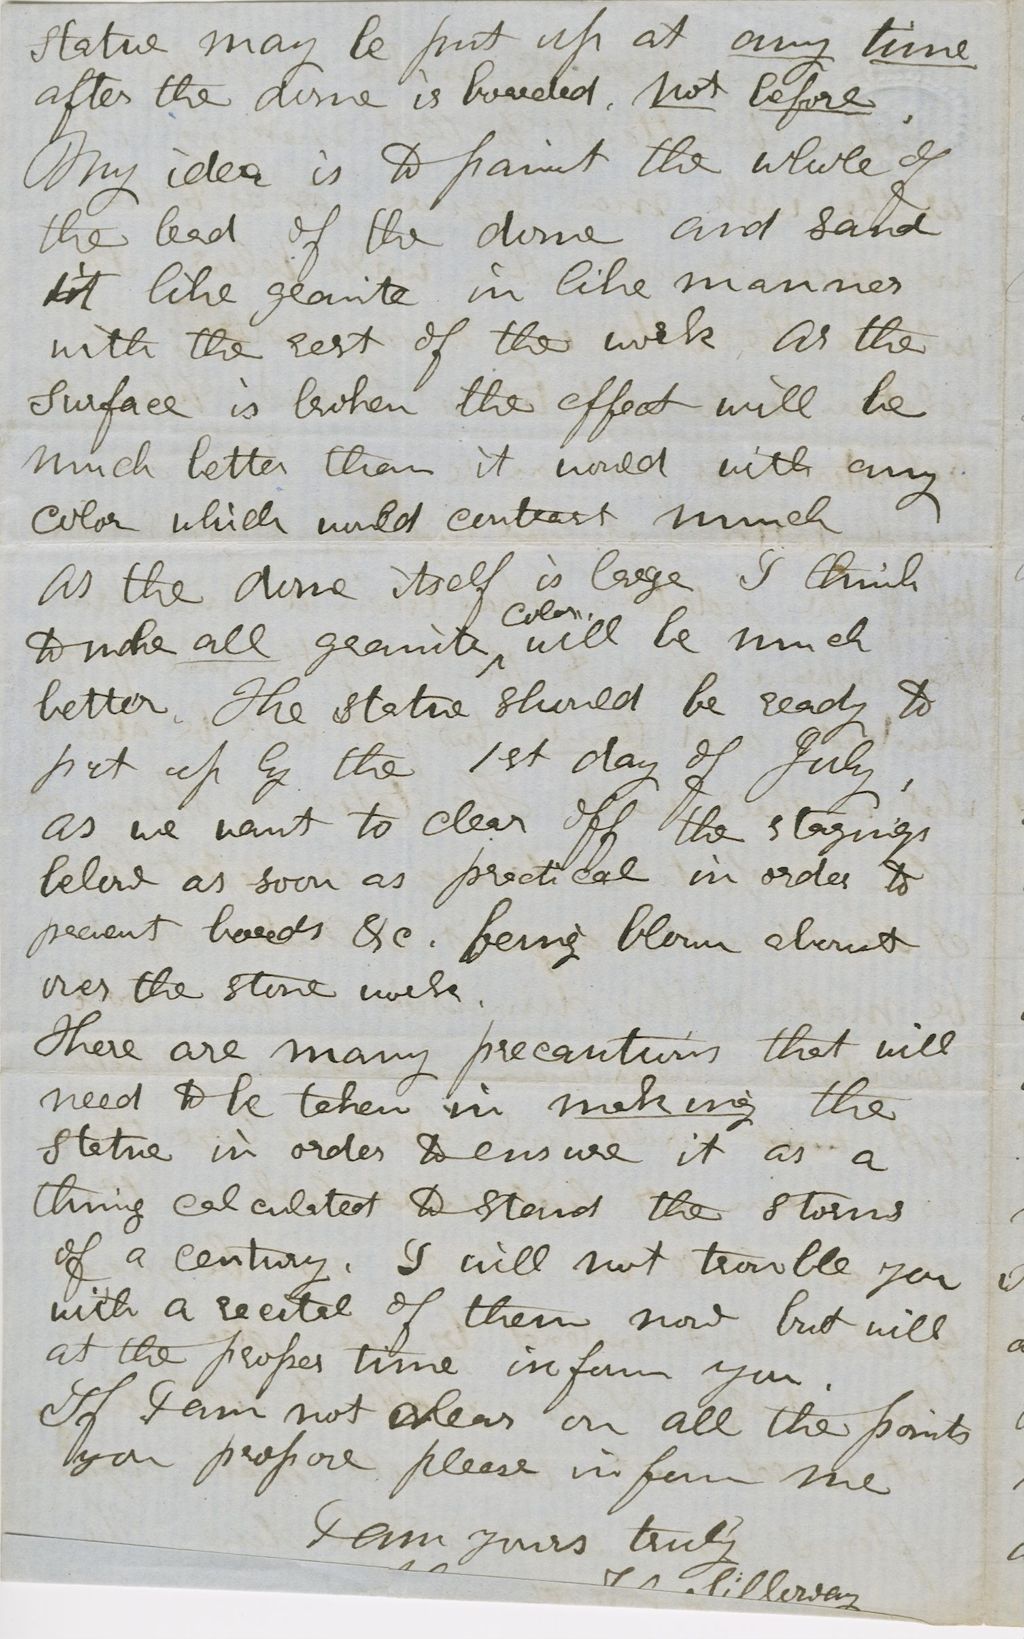 statue may be put up at any time
after the dome is boarded. not before.
My idea is to paint the whole of
the lead of the dome and sand
it like granite in like manner
with the rest of the work. As the
surface is broken the effect will be
much better than it would with any
color which would contrast much
As the dome itself is large I think
to make all granite color will be much
better. The statue should be ready to
put up by the 1st day of July,
as we want to clear off the stagings
below as soon as practical in order to
prevent boards &c. being blown about
over the stone work.
There are many precautions that will
need to be taken in making the
statue in order to ensure it as a
thing calculated to stand the storms
of a century. I will not trouble you
with a recital of them now but will
at the proper time inform you.
If I am not clear on all the points
you propose please inform me
I am yours truly
Silloway